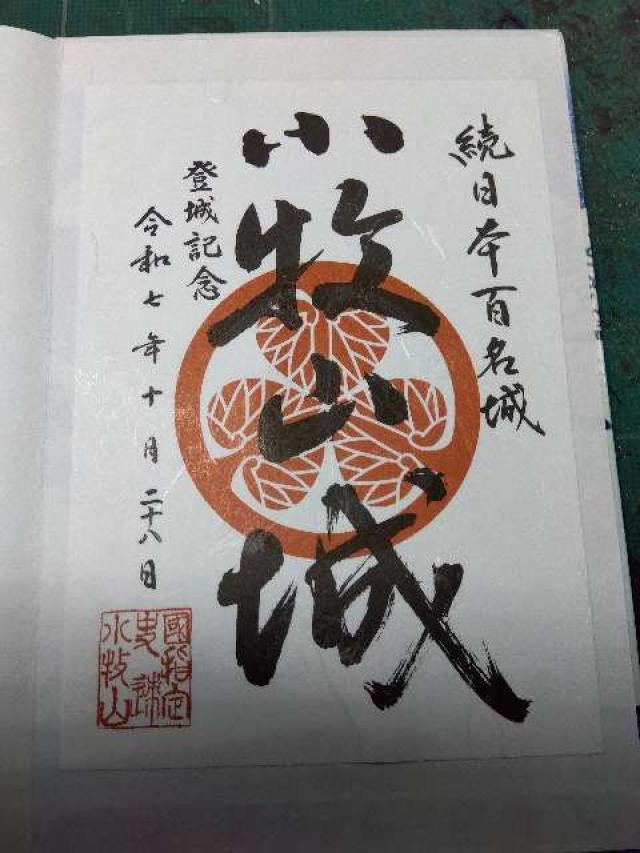 続日本百名城
小牧山城
登城記念
令和七年十月二十八日
國指定
史跡
小牧山